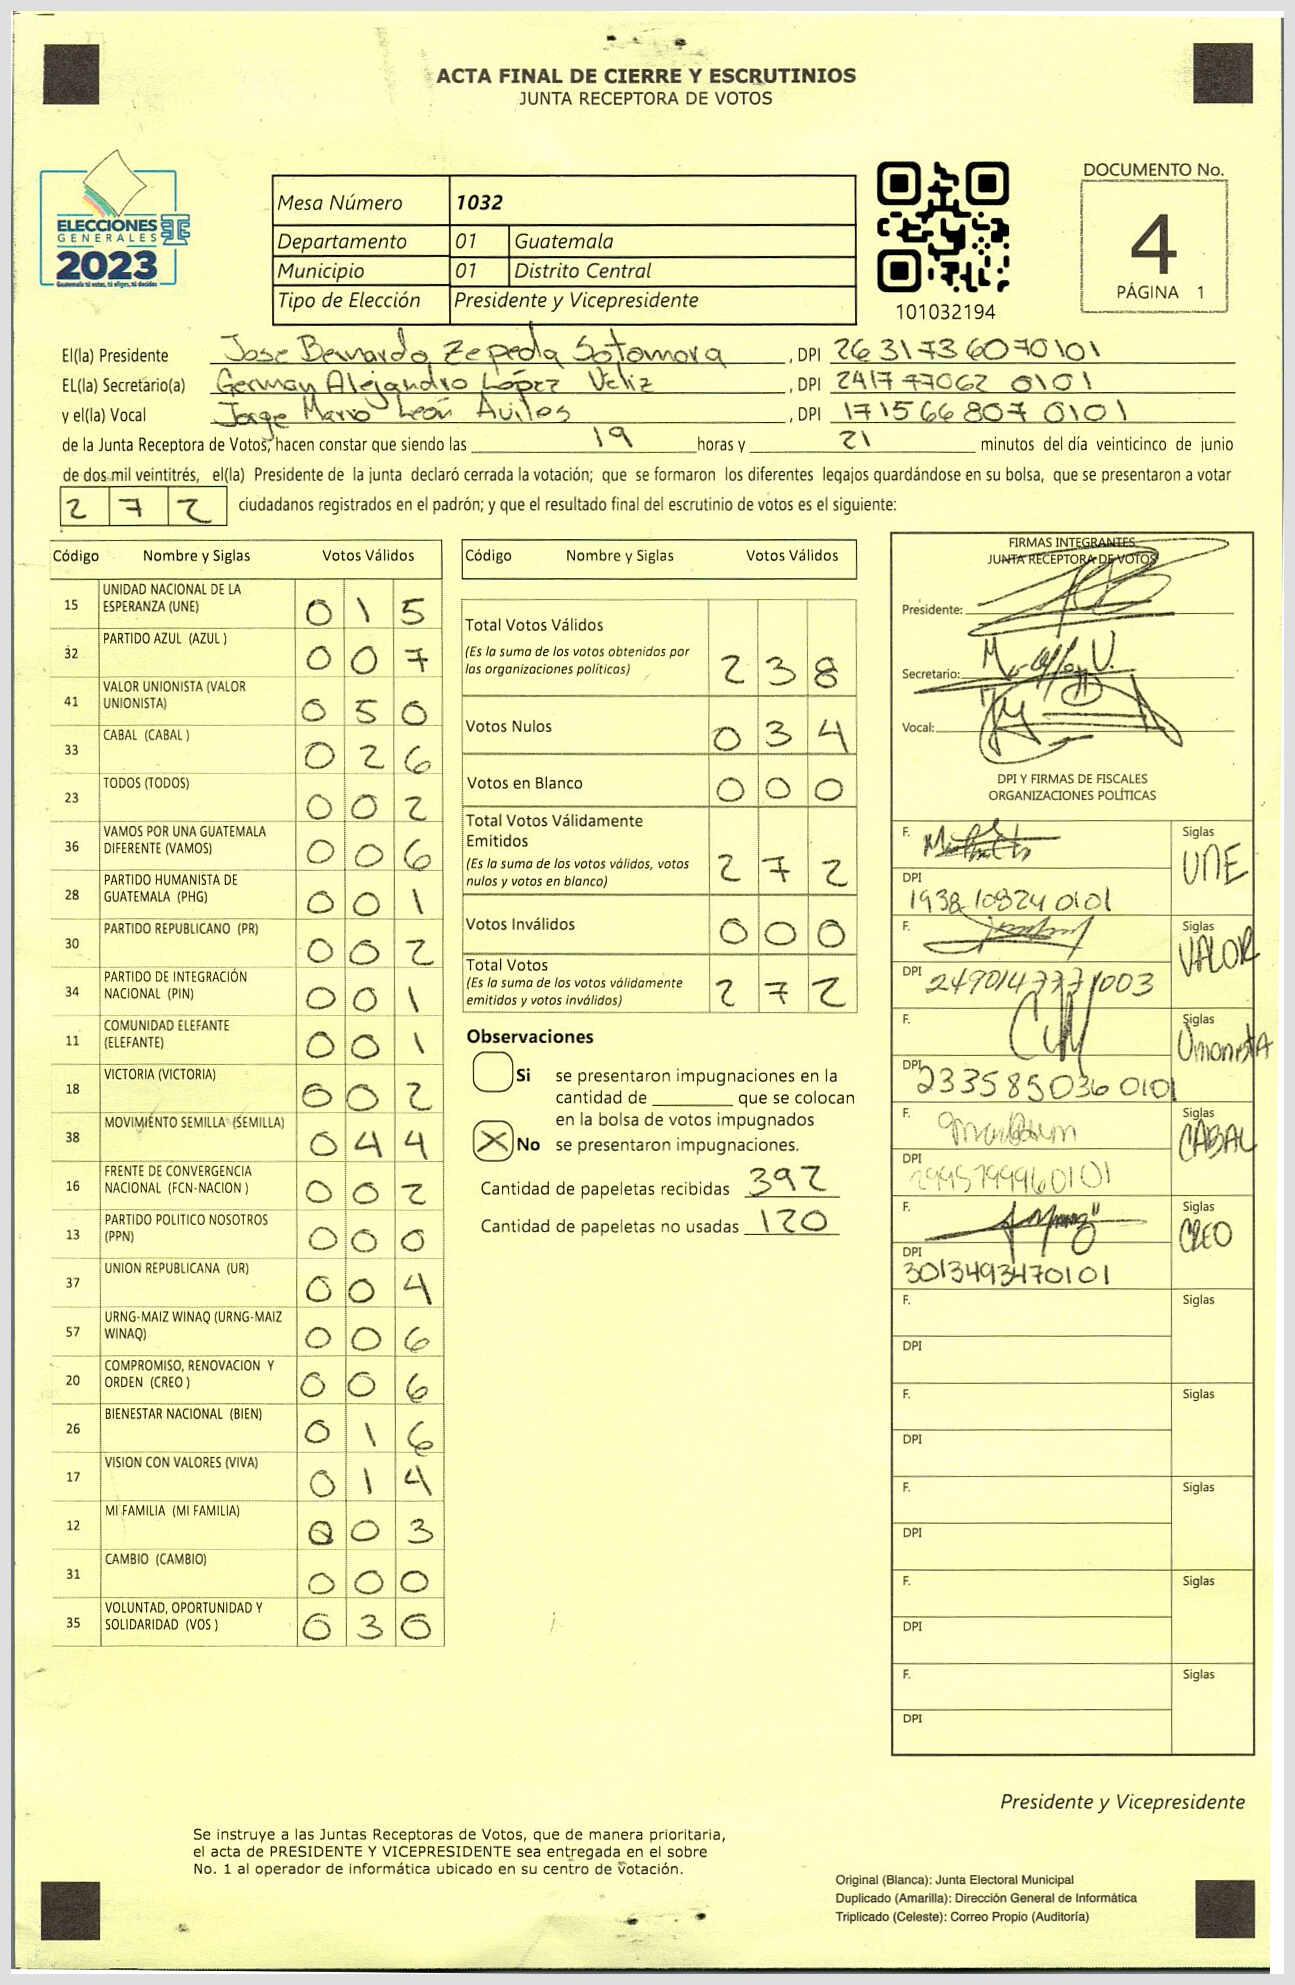 ACTA FINAL DE CIERRE Y ESCRUTINIOS
JUNTA RECEPTORA DE VOTOS
ELECCIONES
GENERALES
2023
Guatemala tú votas, tú eliges, tú decides
Mesa Número 1032
Departamento 01 Guatemala
Municipio 01 Distrito Central
Tipo de Elección Presidente y Vicepresidente
101032194
DOCUMENTO No.
4
PÁGINA 1
El(la) Presidente Jose Bernardo Zepeda Sotomora, DPI 2631736070101
EL(la) Secretario(a) German Alejandro López Veliz, DPI 241777062 0101
y el(la) Vocal Jorge Mario León Aviles, DPI 171566807 0101
de la Junta Receptora de Votos, hacen constar que siendo las 19 horas y 21 minutos del día veinticinco de junio
de dos mil veintitrés, el(la) Presidente de la junta declaró cerrada la votación; que se formaron los diferentes legajos guardándose en su bolsa, que se presentaron a votar
272 ciudadanos registrados en el padrón; y que el resultado final del escrutinio de votos es el siguiente:
Código Nombre y Siglas Votos Válidos
15 UNIDAD NACIONAL DE LA
ESPERANZA (UNE) 015
32 PARTIDO AZUL (AZUL ) 007
41 VALOR UNIONISTA (VALOR
UNIONISTA) 050
33 CABAL (CABAL ) 026
23 TODOS (TODOS) 002
36 VAMOS POR UNA GUATEMALA
DIFERENTE (VAMOS) 006
28 PARTIDO HUMANISTA DE
GUATEMALA (PHG) 001
30 PARTIDO REPUBLICANO (PR) 002
34 PARTIDO DE INTEGRACIÓN
NACIONAL (PIN) 001
11 COMUNIDAD ELEFANTE
(ELEFANTE) 001
18 VICTORIA (VICTORIA) 002
38 MOVIMIENTO SEMILLA (SEMILLA) 044
16 FRENTE DE CONVERGENCIA
NACIONAL (FCN-NACION ) 002
13 PARTIDO POLITICO NOSOTROS
(PPN) 000
37 UNION REPUBLICANA (UR) 004
57 URNG-MAIZ WINAQ (URNG-MAIZ
WINAQ) 006
20 COMPROMISO, RENOVACION Y
ORDEN (CREO ) 006
26 BIENESTAR NACIONAL (BIEN) 016
17 VISION CON VALORES (VIVA) 014
12 MI FAMILIA (MI FAMILIA) 003
31 CAMBIO (CAMBIO) 000
35 VOLUNTAD, OPORTUNIDAD Y
SOLIDARIDAD (VOS ) 030
Código Nombre y Siglas Votos Válidos
Total Votos Válidos 238
(Es la suma de los votos obtenidos por
las organizaciones políticas)
Votos Nulos 034
Votos en Blanco 000
Total Votos Válidamente
Emitidos 272
(Es la suma de los votos válidos, votos
nulos y votos en blanco)
Votos Inválidos 000
Total Votos 272
(Es la suma de los votos válidamente
emitidos y votos inválidos)
Observaciones
Si se presentaron impugnaciones en la
cantidad de ________ que se colocan
en la bolsa de votos impugnados
X No se presentaron impugnaciones.
Cantidad de papeletas recibidas 392
Cantidad de papeletas no usadas 120
FIRMAS INTEGRANTES
JUNTA RECEPTORA DE VOTOS
Presidente:
Secretario:
Vocal:
DPI Y FIRMAS DE FISCALES
ORGANIZACIONES POLÍTICAS
F. Siglas UNE
DPI 1938108240101
F. Siglas VALOR
DPI 2490147771003
F. Siglas Unionista
DPI 2335850360101
F. Siglas CABAL
DPI 2995799960101
F. Siglas CREO
DPI 3013493470101
F. Siglas
DPI
F. Siglas
DPI
F. Siglas
DPI
F. Siglas
DPI
F. Siglas
DPI
Presidente y Vicepresidente
Se instruye a las Juntas Receptoras de Votos, que de manera prioritaria,
el acta de PRESIDENTE Y VICEPRESIDENTE sea entregada en el sobre
No. 1 al operador de informática ubicado en su centro de votación.
Original (Blanca): Junta Electoral Municipal
Duplicado (Amarilla): Dirección General de Informática
Triplicado (Celeste): Correo Propio (Auditoría)